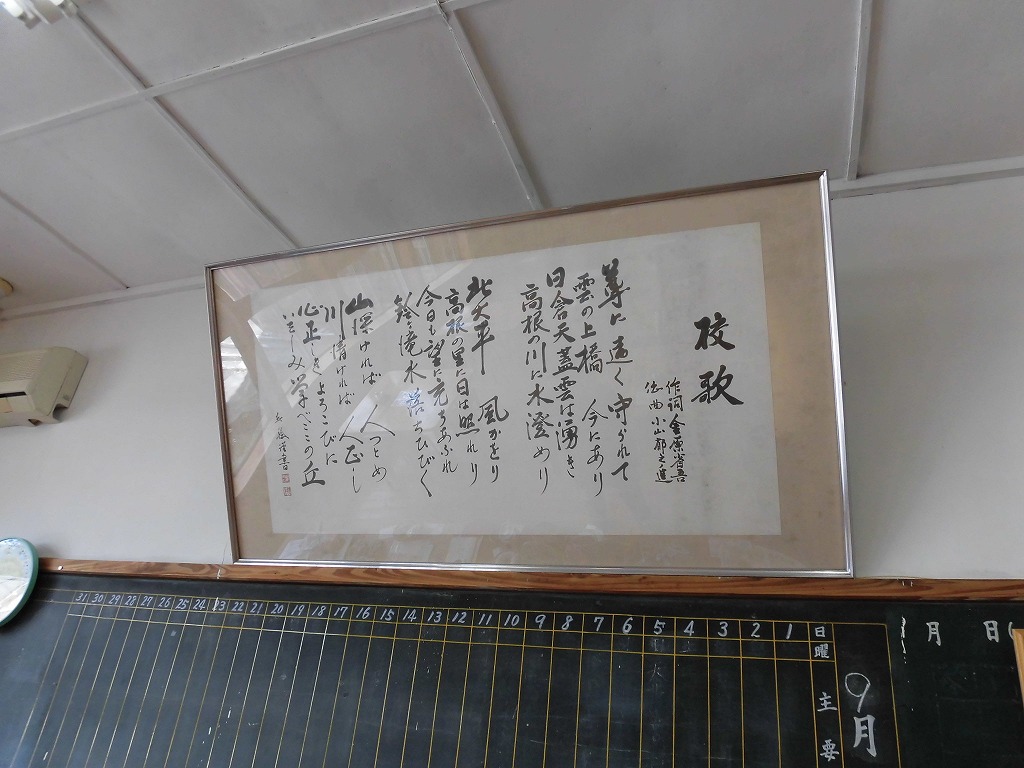 校歌
作詞 金原省吾
作曲 小山郁之進
尊に遠く守られて
雲の上橋 今にあり
日含天蓋雲は湧き
高根の川に水澄めり
北大平 風かをり
高根の里に日は照れり
今日も望に充ちあふれ
鈴ヶ滝水落ちひびく
山深ければ 人つとめ
川清ければ 人正し
心正しきよろこびに
いそしみ学べこゝの丘
月 日(
9月
日曜 1 2 3 4 5 6 7 8 9 10 11 12 13 14 15 16 17 18 19 20 21 22 23 24 25 26 27 28 29 30 31
主要